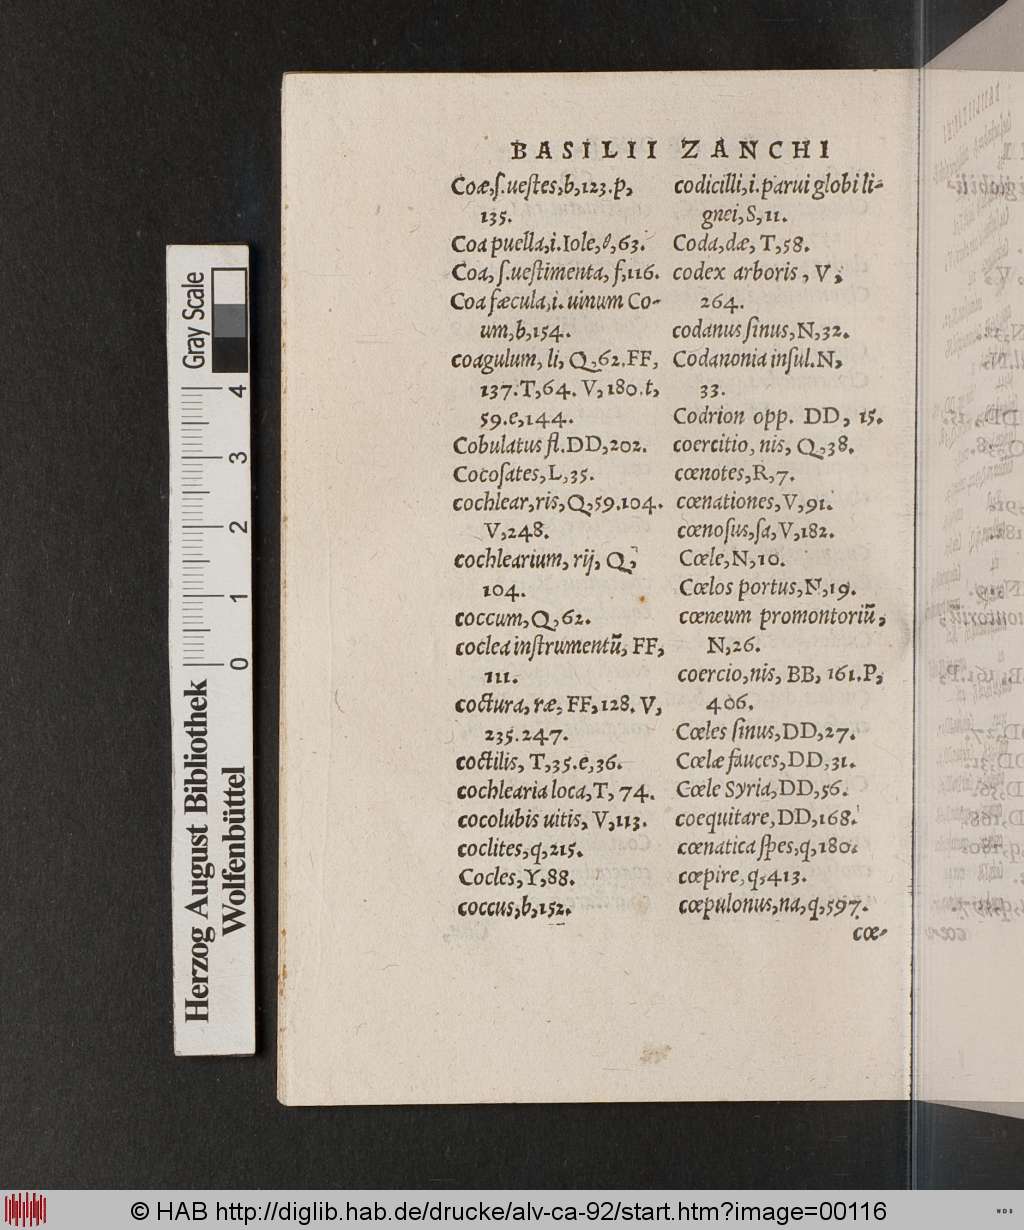 BASILII ZANCHI
Coæ,ſ.ueſtes,b,123.p,
135.
Coa puella,i.Iole,e,63.
Coa, ſ.ueſtimenta, f,116.
Coa fæcula,i. uinum Co-
um,b,154.
coagulum, li, Q,62.FF,
137.T,64. V,180.t,
59.e,144.
Cobulatus fl.DD,202.
Cocoſates,L,35.
cochlear,ris,Q,59.104.
V,248.
cochlearium, rij, Q,
104.
coccum,Q,62.
coclea inſtrumentũ, FF,
111.
coctura, ræ, FF,128. V,
235.247.
coctilis, T,35.e,36.
cochlearia loca,T, 74.
cocolubis uitis, V,113.
coclites,q,215.
Cocles,Y,88.
coccus,b,152.
codicilli,i.parui globi li-
gnei,S,11.
Coda,dæ, T,58.
codex arboris, V,
264.
codanus ſinus,N,32.
Codanonia inſul.N,
33.
Codrion opp. DD, 15.
coercitio, nis, Q,38.
cœnotes,R,7.
cœnationes,V,91.
cœnoſus,ſa,V,182.
Cœle,N,10.
Cœlos portus,N,19.
cœneum promontoriũ,
N,26.
coercio,nis, BB, 161.P,
406.
Cœles ſinus,DD,27.
Cœlæ fauces,DD,31.
Cœle Syria,DD,56.
coequitare,DD,168.
cœnatica ſpes,q,180.
cœpire,q,413.
cœpulonus,na,q,597.
cœ-
Gray Scale
4
3
2
1
0
Herzog August Bibliothek
Wolfenbüttel
© HAB http://diglib.hab.de/drucke/alv-ca-92/start.htm?image=00116
WDB